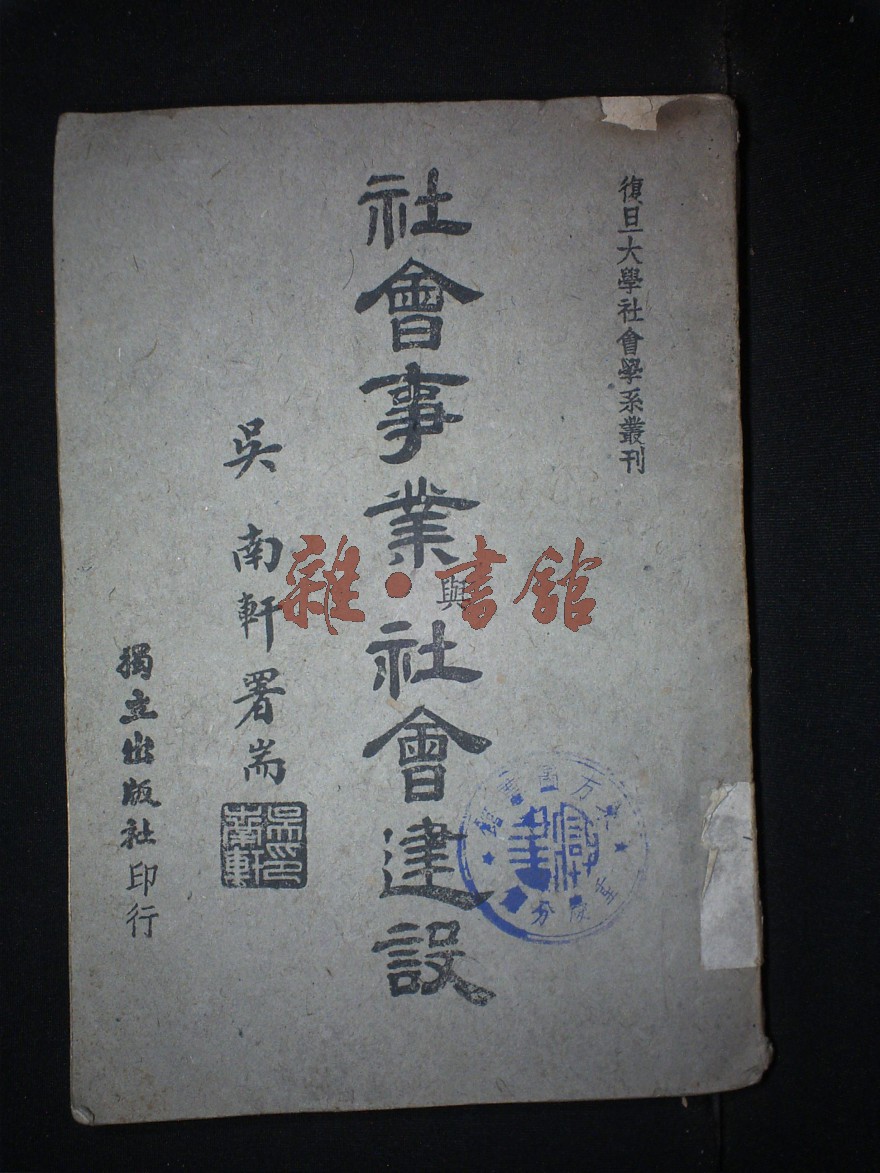 復旦大學社會學系叢刊
社會事業與社會建設
吳南軒署耑
吳印南軒
獨立出版社印行
雜·書館